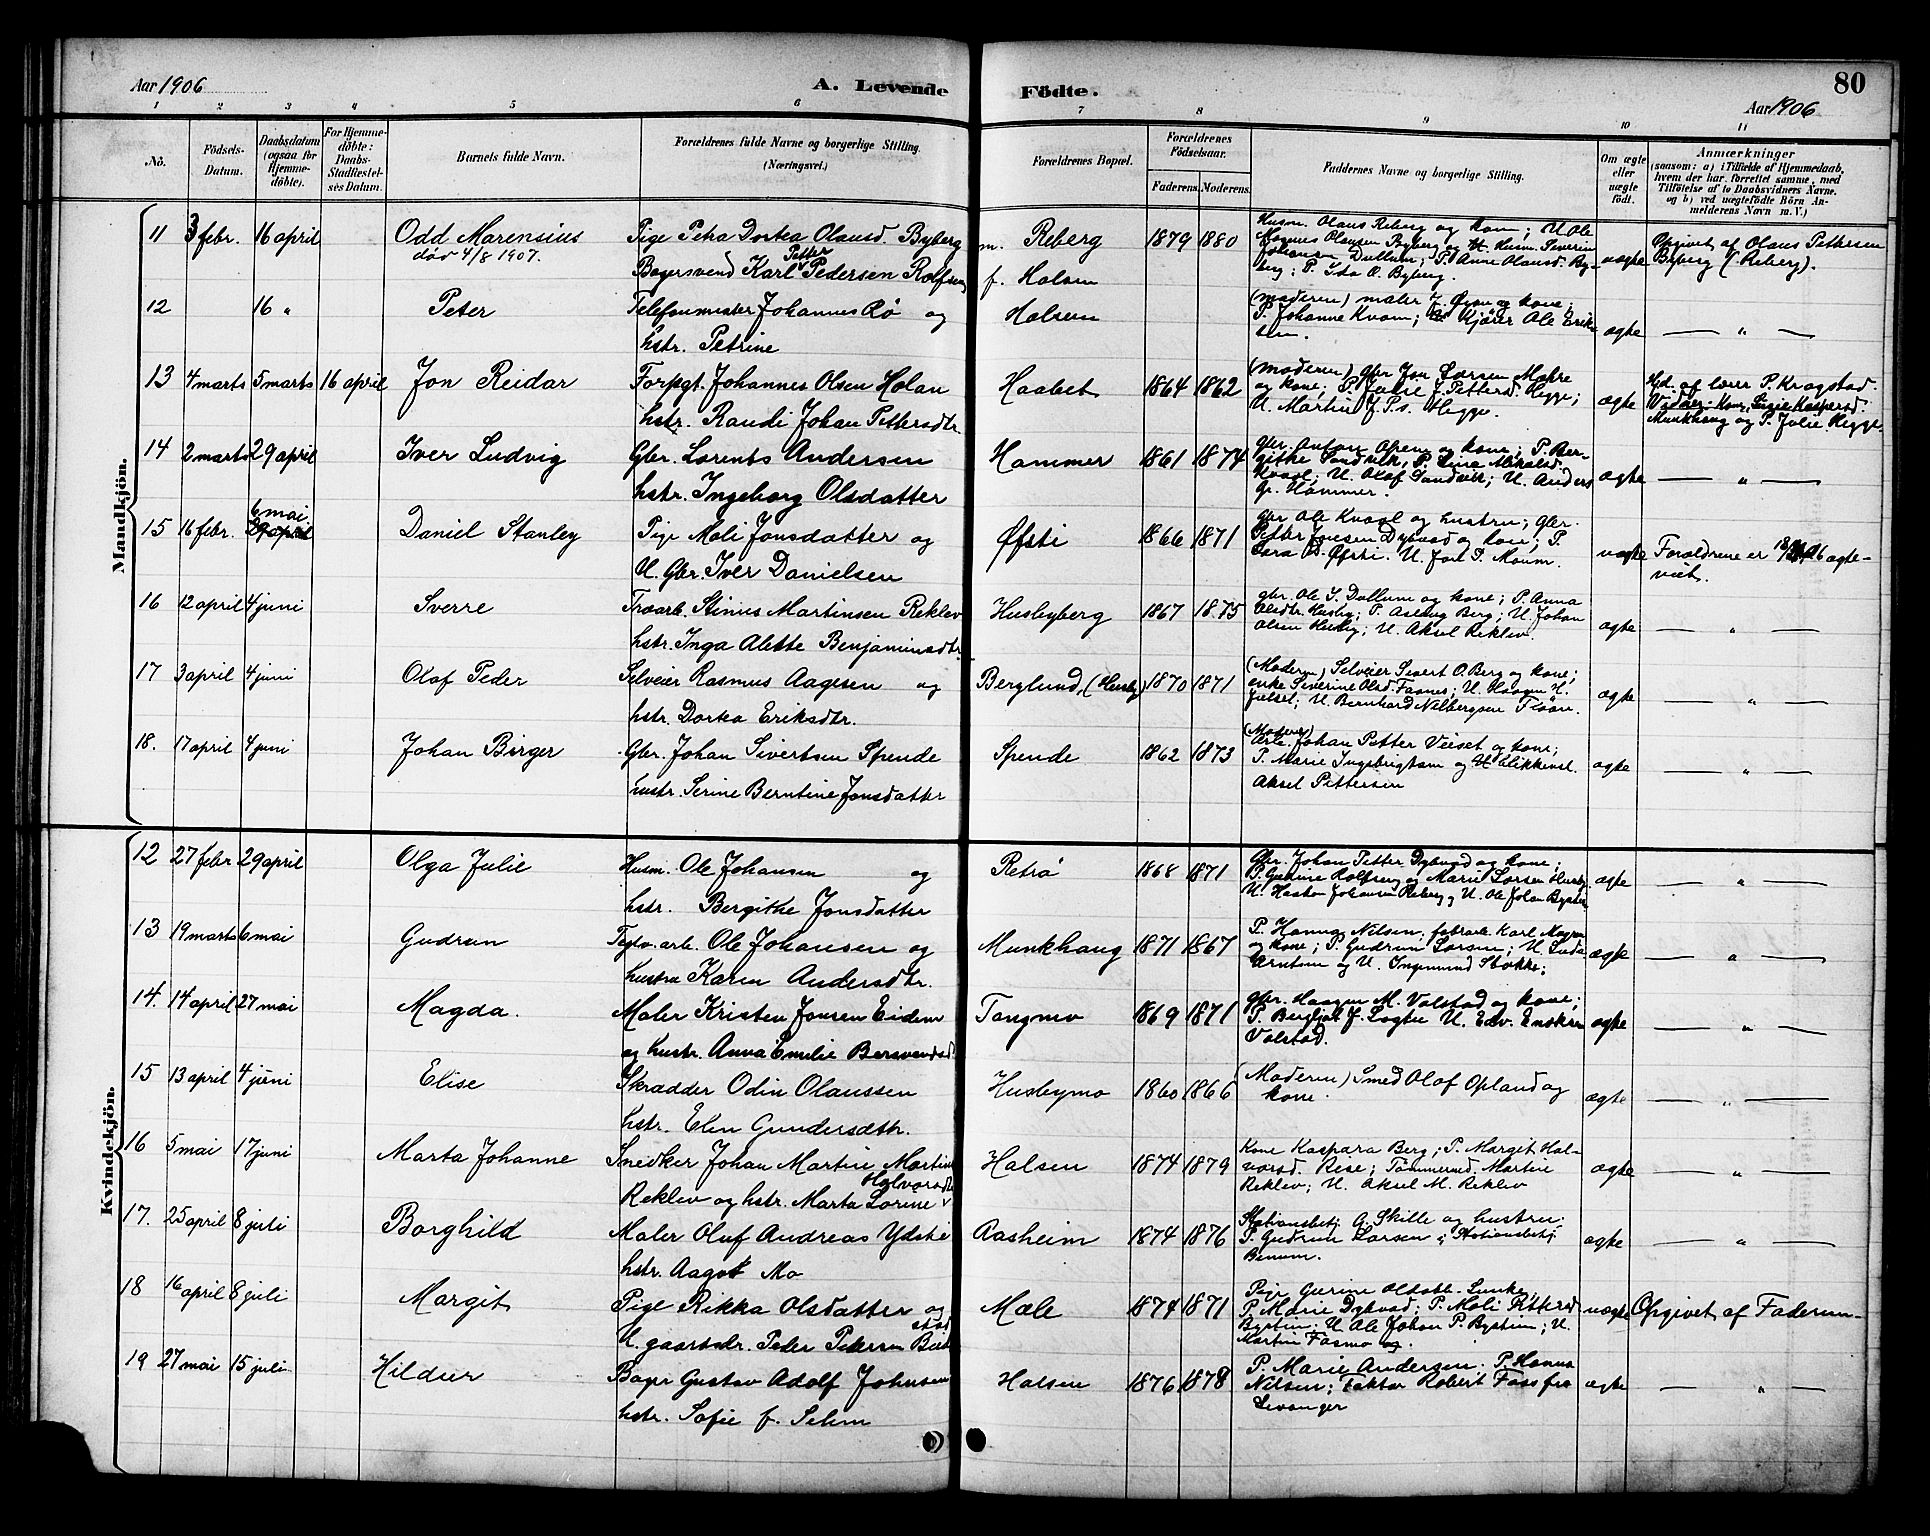 Aar 1906
A. Levende Födte.
80
Aar 1906
1 2 3 4 5 6 7 8 9 10 11
No.
Födsels-Datum.
Daabsdatum (ogsaa for Hjemmedöbte).
For Hjemmedöbte: Daabs-Stadfæstelses Datum.
Barnets fulde Navn.
Forældrenes fulde Navne og borgerlige Stilling. (Næringsvei.)
Forældrenes Bopæl.
Forældrenes Födselsaar.
Faderens. Moderens.
Faddernes Navne og borgerlige Stilling.
Om ægte eller uægte födt.
Anmærkninger
(saasom: a) i Tilfælde af Hjemmedaab,
hvem der har forrettet samme, med
Tilföielse af to Daabsvidners Navne.
og b) ved uægtefödte Börn Anmelderens Navn m. V.)
Mandkjön.
11 3 febr. 16 april Odd Marensius Pige Petra Dortea Olausd. Byberg m. Reberg 1879 1880 Husm. Olaus Reberg og kone; U. Ole
død 4/8 1907. Petter Magnus Olausen Byberg og U. Husm. Severin
Bagersvend Karl Pedersen Rolfsen f. Halsen Johansen Dullum; P. Anne Olausd. Byberg; P. Ida O. Byberg. uægte Opgivet af Olaus Pettersen Byberg (Reberg).
12 16 " Peter Telefonmester Johannes Rø og Halsen (moderen) maler J. Øien og kone;
hstr. Petrine P. Johanne Kvam; Kjører Ole Eriksen. ægte — " —
13 4 marts 5 marts 16 april Jon Reidar Forpgt. Johannes Olsen Holan Haabet 1864 1862 (moderen) gbr Jon Larsen Mæhre
hstr. Randi Johan Pettersdtr. og kone; P. Julie J. Pettersd. Hegge; U. Martin J. P.s. Hegge. ægte Hjd. af lærer P. Kragstad. Vidner: Kone Kaspersd. Munkhaug og P. Julie Hegge.
14 2 marts 29 april Iver Ludvig Gbr. Lorents Andersen Hammer 1861 1874 gbr. Anton Øren og kone; P. Bergithe Sandvik, P. Lina Mikalsd.
hstr. Ingeborg Olsdatter Kvaal; U. Olaf Sandvik; U. Anders Gr. Hammer. ægte — " —
15 16 febr. 6 mai 29 april Daniel Stanley Pige Moli Jonsdatter og Øfsti 1866 1871 gbr Ole Kvaal og hustru; gbr.
U. Gbr. Iver Danielsen Petter Jonsen Dybvad og kone; P. Sara D. Øfsti. U. Jon P. Moum. uægte Forældrene er 06 ægteviet.
16 12 april 4 juni Sverre Træarb. Stinus Martinsen Reklev Husbyberg 1867 1875 gbr. Ole J. Dullum og kone; P. Anna
hstr. Inga Alette Benjaminsdtr. Olsdtr. Husby; P. Aslaug Berg; U. Johan Olsen Husby, U. Aksel Reklev. ægte — " —
17 3 april 4 juni Olaf Peder Selveier Rasmus Aagesen og Berglund, (Husby) 1870 1871 (Moderen) Selveier Sivert O. Berg og kone;
hstr. Dortea Eriksdtr. enke Siverine Olsd. Fasnes; U. Haagen H. Julset; U. Bernhard Nilbergsen Floan. ægte — " —
18. 17 april 4 juni Johan Birger Gbr. Johan Sivertsen Spende Spende 1862 1873 (Moderen) Arb. Johan Petter Veiset og kone;
hustr. Serine Berntine Jonsdatter P. Marie Ingebrigtsen og U. Blikkensl. Aksel Pettersen ægte — " —
Kvindekjön.
12 27 febr. 29 april Olga Julie Husm. Ole Johansen og Retrø 1868 1871 Gbr. Johan Petter Dybvad og kone;
hstr. Bergithe Jonsdatter P. Gurine Rolfseng og Marie Larsen Husby. U. Haakon Johansen Reberg, U. Ole Johan Bystin ægte — " —
13 19 marts 6 mai Gudrun Teglv. arb. Ole Johansen og Munkhaug 1871 1867 P. Hanna Nilsen; fabrarb. Karl Magnu
hustru Karen Andersdtr. og kone; P. Gudrun Larsen; U. Ludv Arntsen og U. Ingemund Stokke; ægte — " —
14. 14 april 27 mai Magda. Maler Kristen Jonsen Eidem Tangmo 1869 1871 gbr. Haagen M. Valstad og kone;
og hustr. Anna Emilie Bersvendsd. P. Bergljot J. Lagtu U. Edv. Eriksen Valstad. ægte — " —
15 13 april 4 juni Elise Skrædder Odin Olaussen Husbymo 1860 1866 (Moderen) Smed Olaf Opland og
hstr. Elen Gundersdtr. kone. ægte — " —
16 5 mai 17 juni Marta Johanne Snedker Johan Martin Martins Halsen 1874 1879 Kone Kaspara Berg; P. Margit Hal-
Halvorsdtr
Reklev og hstr. Marta Lorine vorsd. Rese; Tømmermd. Martin Reklev; U. Aksel M. Reklev ægte — " —
17. 25 april 8 juli Borghild Maler Oluf Andreas Ydstie Aasheim 1874 1876 Stationsbetj. G. Skille og hustru;
hstr. Aagot Mo P. Gudrun Larsen; Stationsbetj. Benum. ægte — " —
18 16 april 8 juli Margit Pige Rikka Olsdatter og Mæle 1874 1871 Pige Gurine Olsdatt. Lunke,
U. gaardbr. Peder Petersen P. Marie Dybvad; P. Moli Pettersd Bystin; U. Ole Johan P. Bystin; U. Martin Fasmo. uægte Opgivet af Faderen
19 27 mai 15 juli Hildur Bager Gustav Adolf Johnsen Halsen 1876 1878 P. Marie Andersen; P. Hanna
hstr. Sofie f. Selim Nilsen; Faktor Robert Foss fra Levanger ægte — " —